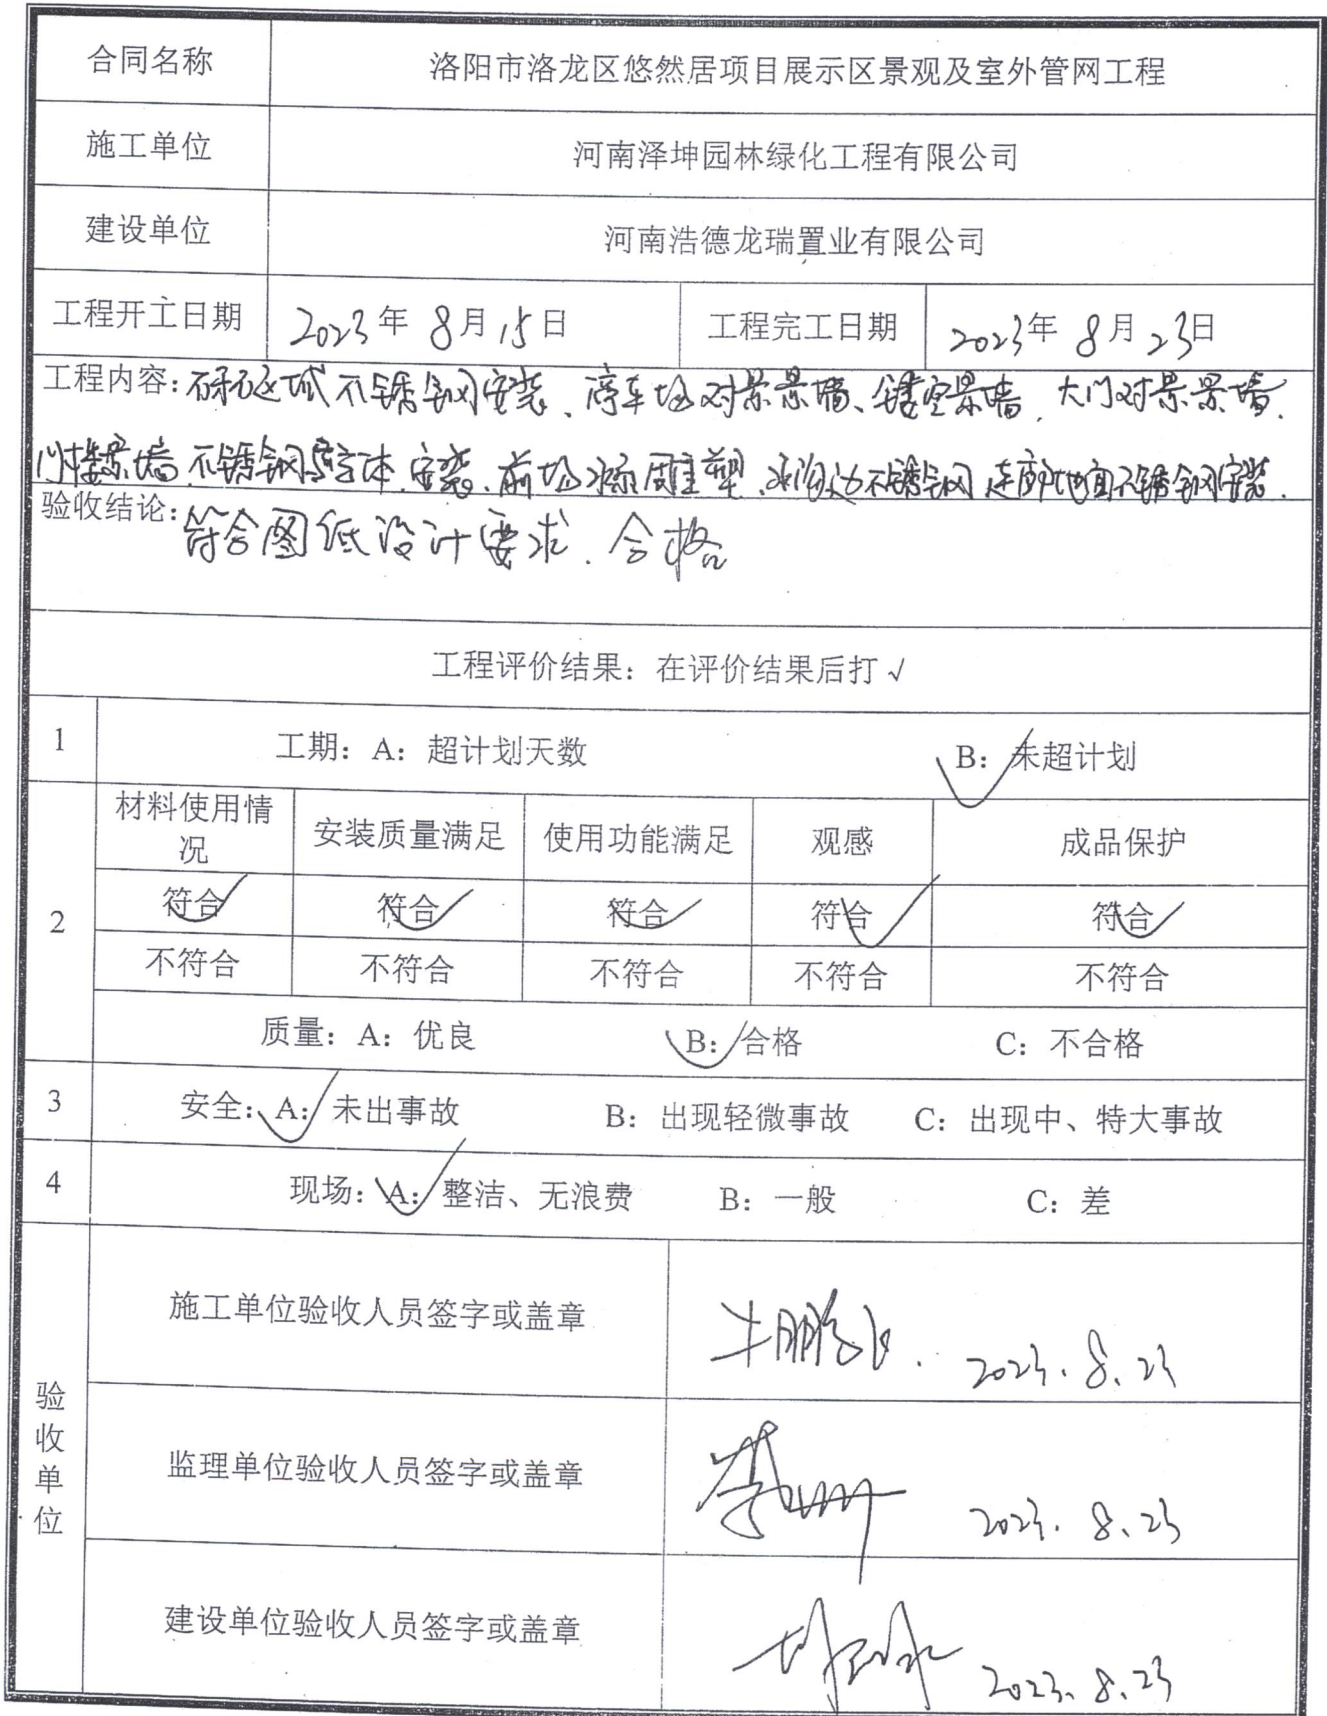 合同名称 洛阳市洛龙区悠然居项目展示区景观及室外管网工程
施工单位 河南泽坤园林绿化工程有限公司
建设单位 河南浩德龙瑞置业有限公司
工程开工日期 2023年 8月 15日 工程完工日期 2023年 8月 23日
工程内容: 砾石区域不锈钢安装、停车场对景景墙、镂空景墙、大门对景景墙、
门楼景墙 不锈钢字体 安装、前场水景雕塑、水沟边不锈钢 连廊地面不锈钢安装.
验收结论: 符合图纸设计要求. 合格
工程评价结果：在评价结果后打 √
1 工期：A：超计划天数 B：√未超计划
材料使用情况 安装质量满足 使用功能满足 观感 成品保护
2 符合√ 符合√ 符合√ 符合√ 符合√
不符合 不符合 不符合 不符合 不符合
质量：A：优良 B：√合格 C：不合格
3 安全：A：√未出事故 B：出现轻微事故 C：出现中、特大事故
4 现场：A：√整洁、无浪费 B：一般 C：差
验收单位
施工单位验收人员签字或盖章 牛鹏飞. 2023.8.23
监理单位验收人员签字或盖章 2023.8.23
建设单位验收人员签字或盖章 2023.8.23